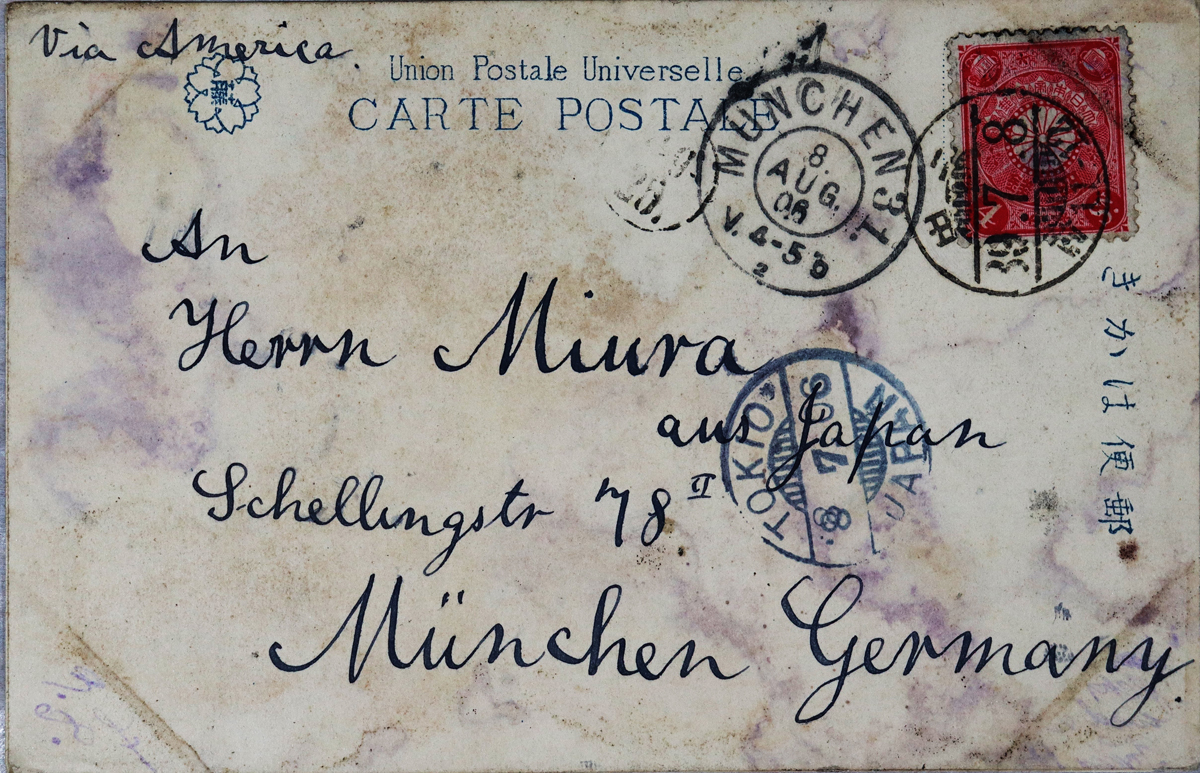 Via America.
Union Postale Universelle
CARTE POSTALE
MÜNCHEN 31.
8.
AUG.
06
V. 4-5
2
39 7 8
4
きかは便郵
An
Herrn Miura
aus Japan
Schellingstr 78 II
München Germany.
TOKIO
8 7 06
JAPAN